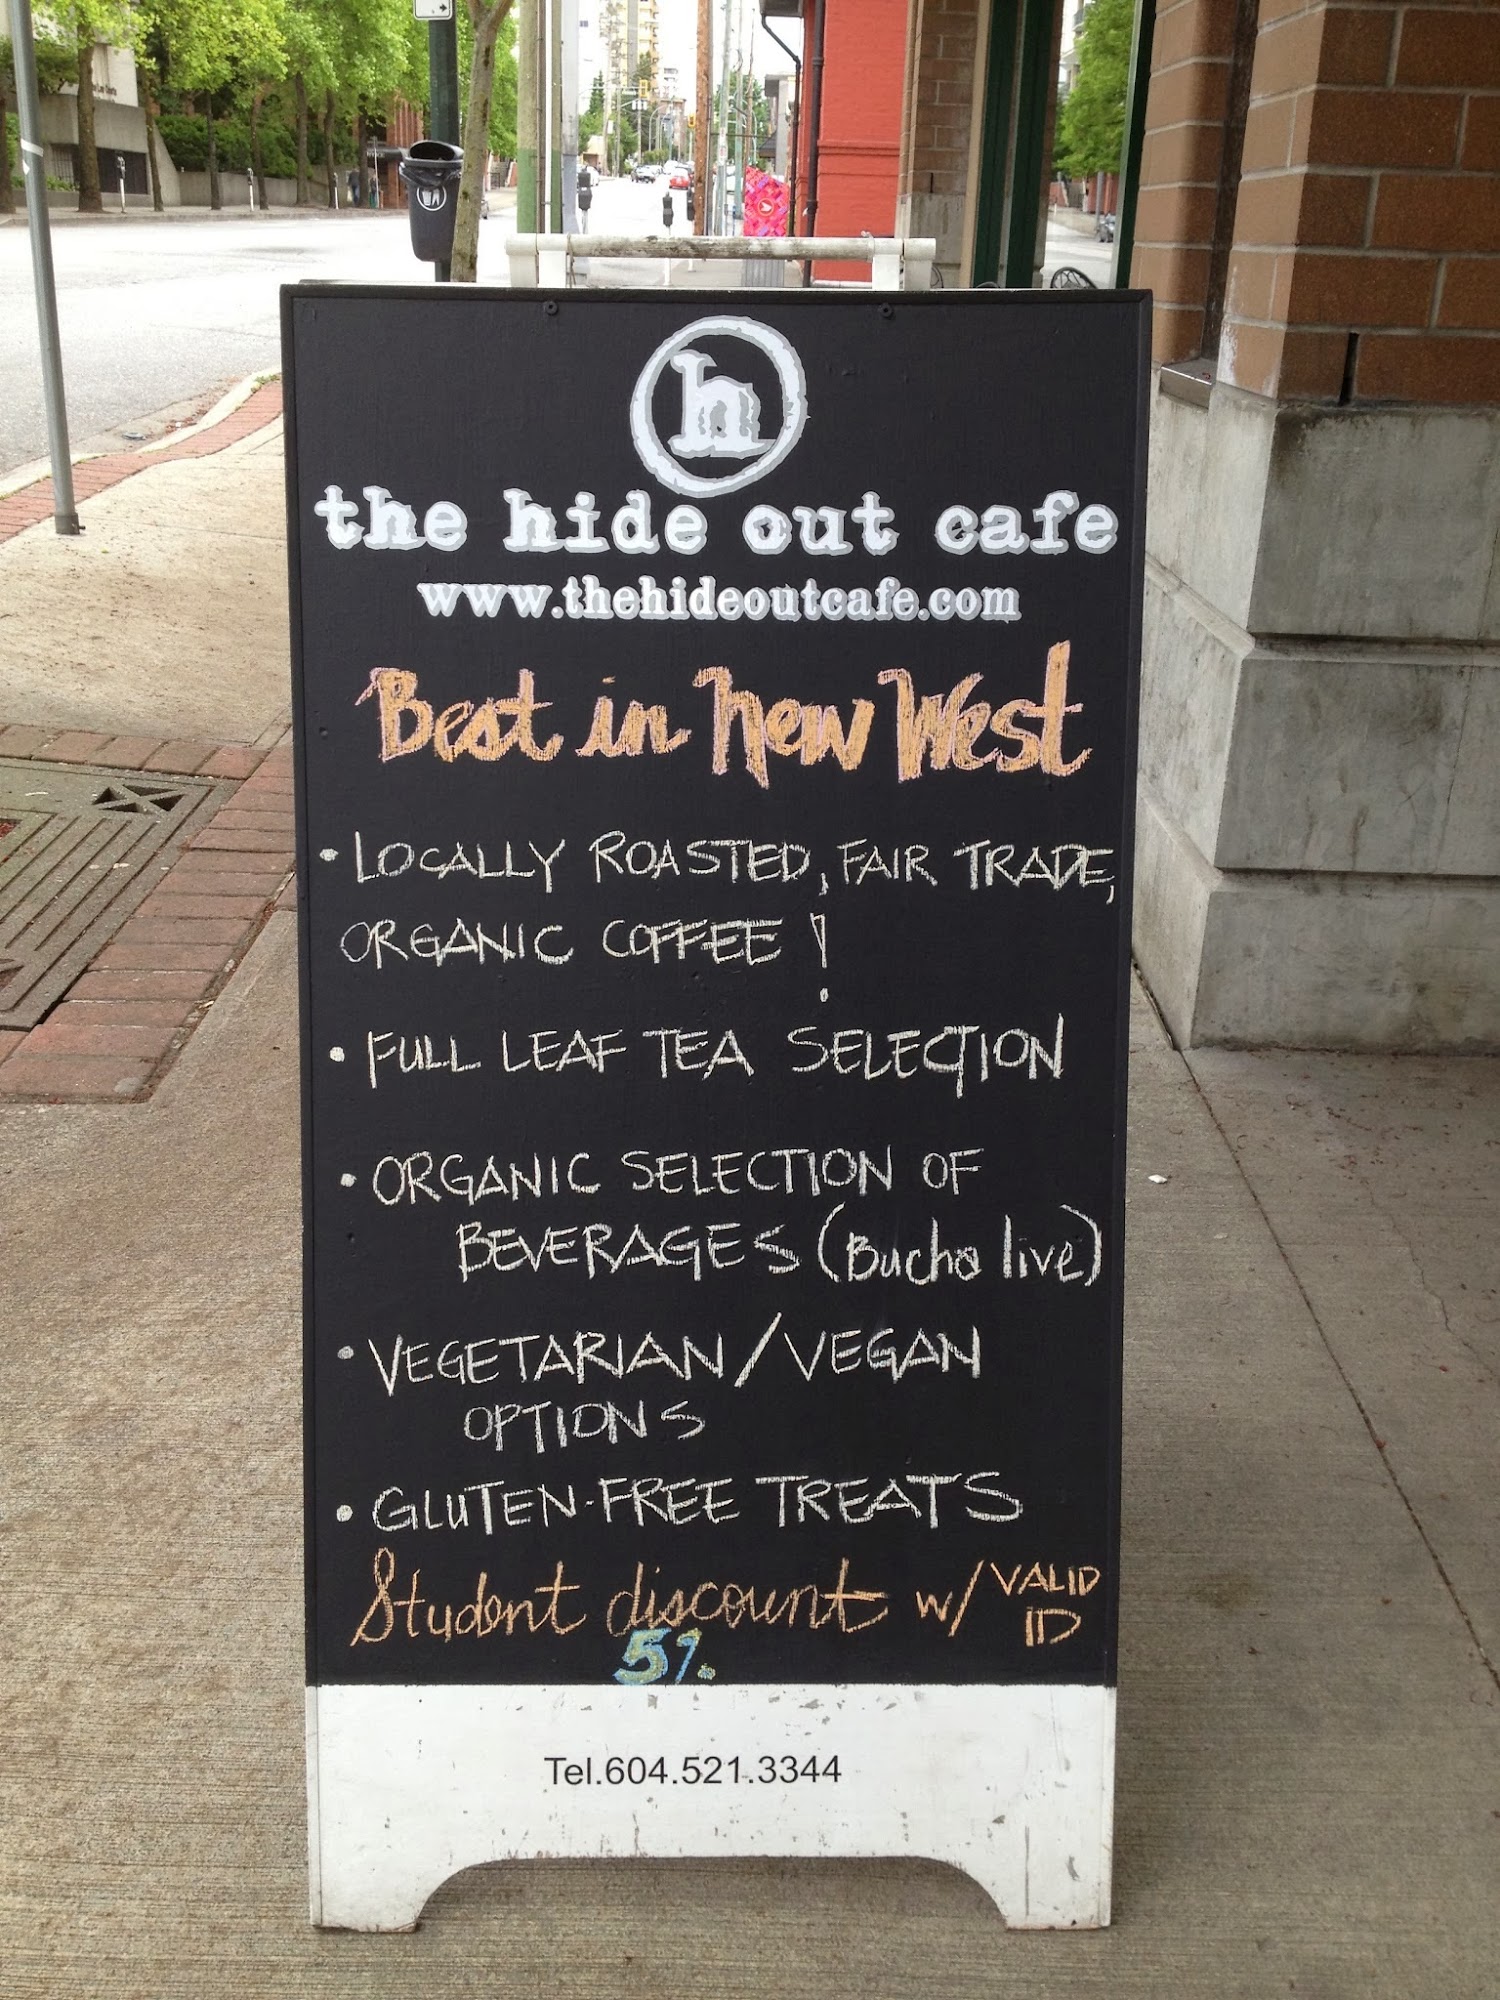 h
the hide out cafe
www.thehideoutcafe.com
Best in New West
• LOCALLY ROASTED, FAIR TRADE,
ORGANIC COFFEE !
• FULL LEAF TEA SELECTION
• ORGANIC SELECTION OF
BEVERAGES (Bucha live)
• VEGETARIAN/VEGAN
OPTIONS
• GLUTEN-FREE TREATS
Student discount w/ VALID
ID
5%
Tel.604.521.3344